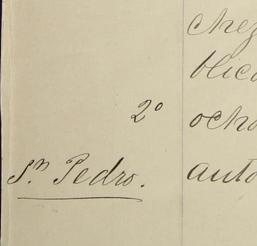 chez
blica
2º ocho
Sn. Pedro. auto